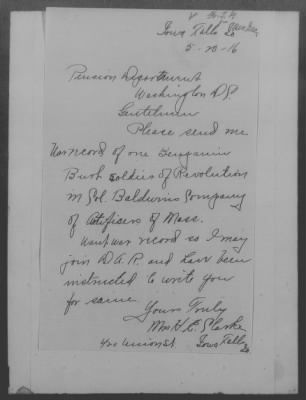 Iowa Falls Ia
5-20-16
Pension Department
Washington D.C.
Gentelmen
Please send me
War record of one Benjamin
Bush soldier of Revolution
in Col. Baldwins Company
of Artificers of Mass.
Want war record so I may
join D.A.R. and have been
instructed to write you
for same
Yours Truly
Mrs H. E. Clarke
420 Union St. Iowa Falls
Ia